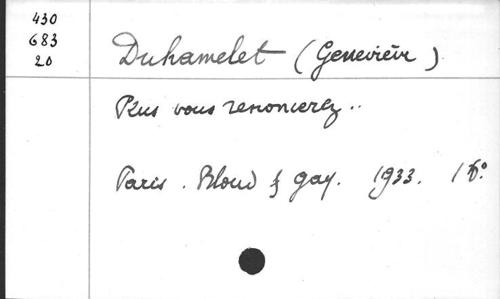 430
683
20
Duhamelet (Geneviève)
Plus vous renoncerez..
Paris. Bloud & Gay. 1933. 16º